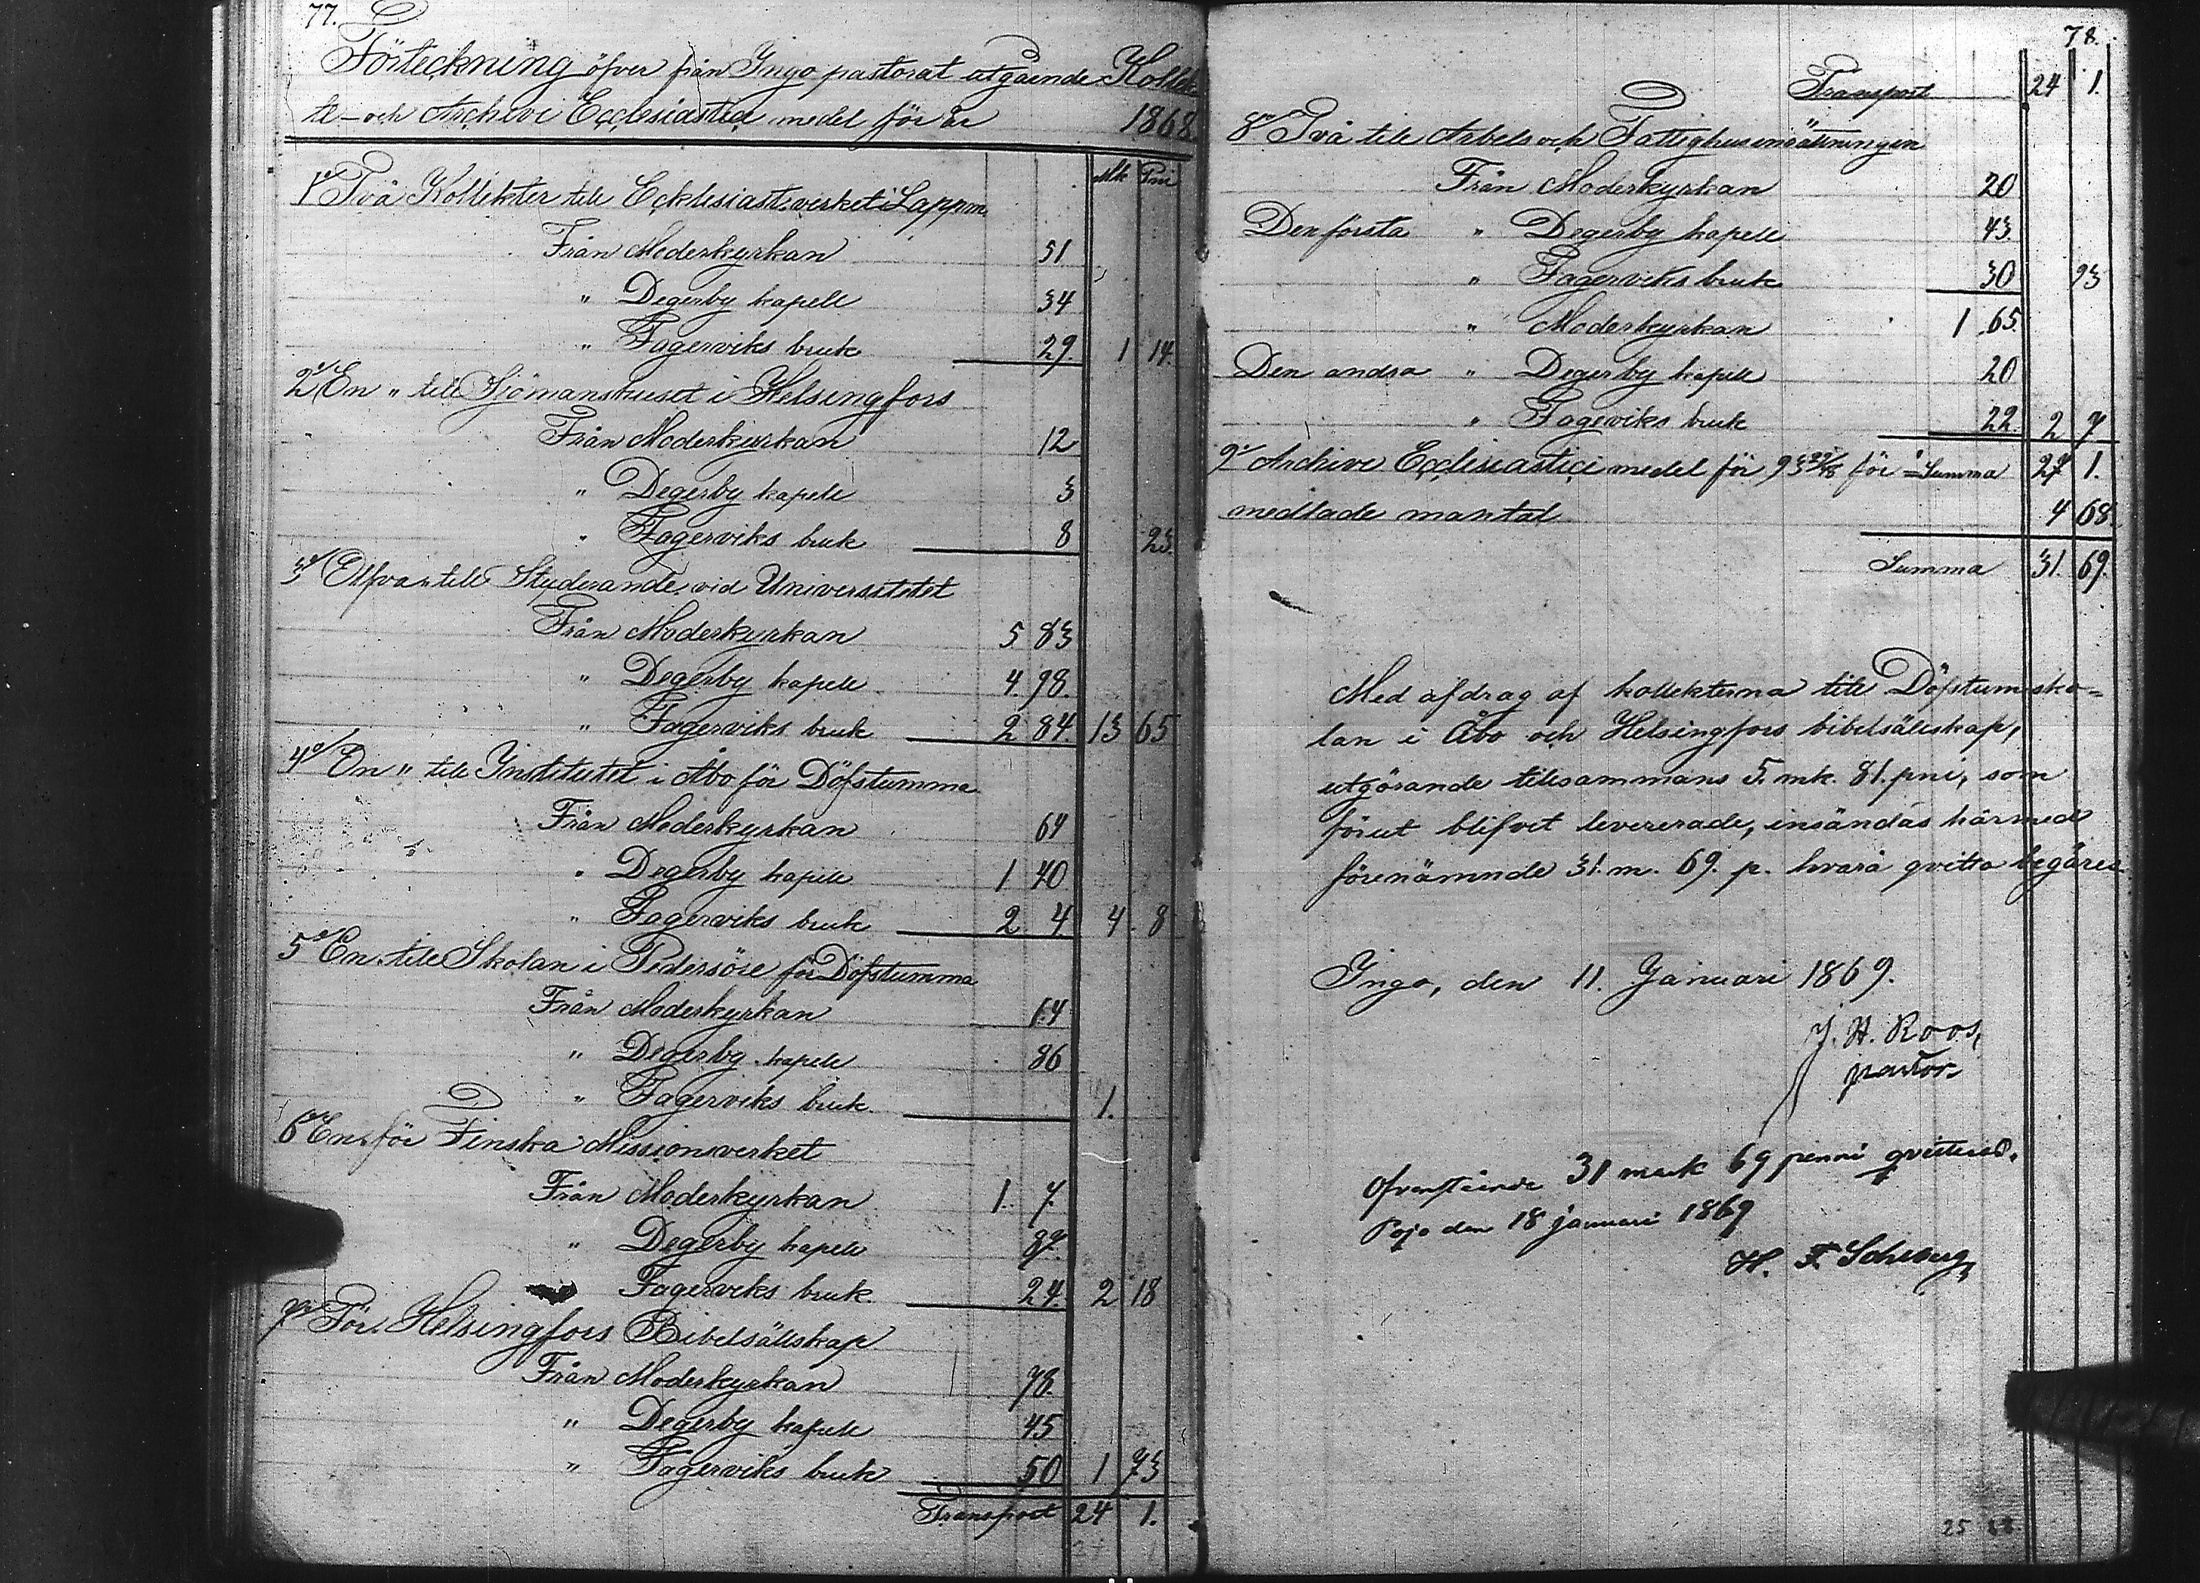 77.
Förteckning öfver från Ingo pastorat utgående Kollek-
te- och Archivi Ecclesiastici medel för år 1868
Mk Pni
1o/ Två Kollekter till Ecklesiast.verket i Lappm.
Från Moderkyrkan 51
" Degerby kapell 34
" Fagerviks bruk 29. 1 14.
2o/ En " till Sjömanshuset i Helsingfors
Från Moderkyrkan 12
" Degerby kapell 3
" Fagerviks bruk 8 23.
3o/ Elfva " till Studerande vid Universitetet
Från Moderkyrkan 5 83
" Degerby kapell 4. 98.
" Fagerviks bruk 2 84. 13 65
4o/ En " till Institutet i Åbo för Döfstumma
Från Moderkyrkan 64
" Degerby kapell 1 40
" Fagerviks bruk 2 4 4 8
5o/ En " till Skolan i Pedersöre för Döfstumma
Från Moderkyrkan 14
" Degerby kapell 86
" Fagerviks bruk 1.
6o/ En " för Finska Missionsverket
Från Moderkyrkan 1 7.
" Degerby kapell 87.
" Fagerviks bruk 24. 2 18
7o/ För Helsingfors Bibelsällskap
Från Moderkyrkan 78.
" Degerby kapell 45
" Fagerviks bruk 50 1 73
Transport 24 1.
78.
Transport 24 1.
8o/ Två till Arbets och Fattighusinrättningen
Från Moderkyrkan 20
Den första " Degerby kapell 43.
" Fagerviks bruk 30 93
" Moderkyrkan 1 65.
Den andra " Degerby kapell 20
" Fagerviks bruk 22. 2 7
9o/ Archivi Ecclesiastici medel för 93 för Summa 27 1.
medlade mantal 4 68
Summa 31. 69.
Med afdrag af kollekterna till Döfstumsko-
lan i Åbo och Helsingfors bibelsällskap,
utgörande tillsammans 5. mk. 81. pni, som
förut blifvit levererade, insändas härmed
förenämnde 31. m. 69. p. hvarå qvitto begäres.
Ingo, den 11. Januari 1869.
J. H. Roos,
pastor.
Ofvanstående 31 mark 69 penni qvitteras.
Pojo den 18 januari 1869
H. F.
25